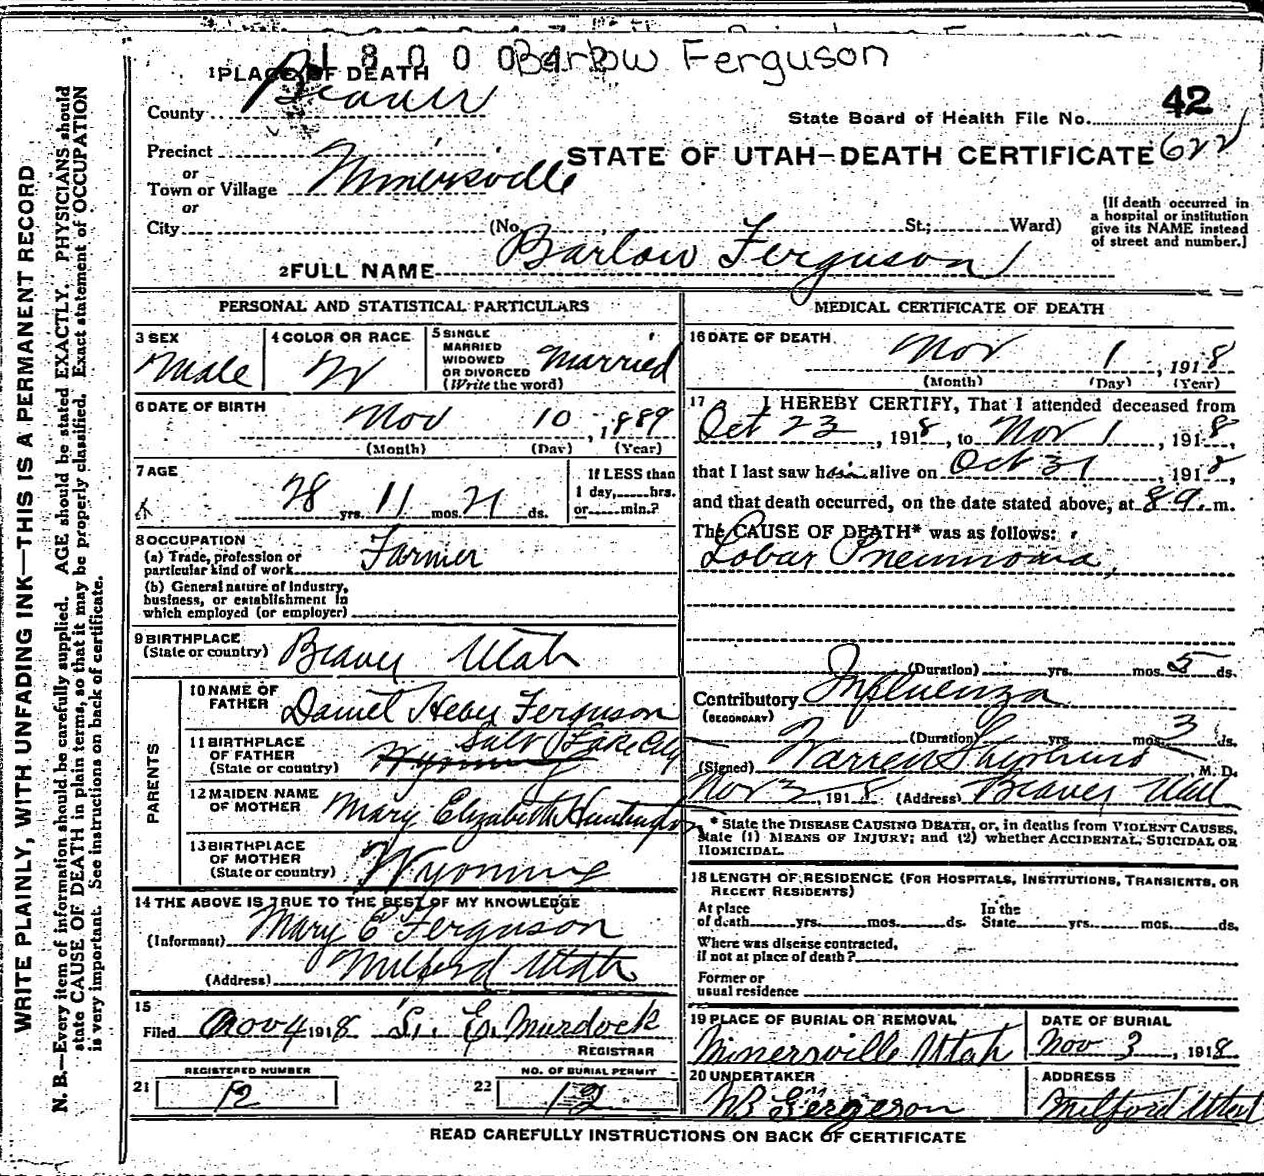 1800042 Barlow Ferguson
1 PLACE OF DEATH
County Beaver
42
State Board of Health File No.
Precinct
or
Town or Village Minersville
STATE OF UTAH—DEATH CERTIFICATE 622
or
City (No. St.; Ward)
[If death occurred in
a hospital or institution
give its NAME instead
of street and number.]
2 FULL NAME Barlow Ferguson
PERSONAL AND STATISTICAL PARTICULARS
3 SEX
Male
4 COLOR OR RACE
W
5 SINGLE
MARRIED
WIDOWED
OR DIVORCED
(Write the word)
Married
6 DATE OF BIRTH
Nov 10, 1889
(Month) (Day) (Year)
7 AGE
28 yrs. 11 mos. 21 ds.
If LESS than
1 day, hrs.
or min.?
8 OCCUPATION
(a) Trade, profession or
particular kind of work Farmer
(b) General nature of industry,
business, or establishment in
which employed (or employer)
9 BIRTHPLACE
(State or country) Beaver Utah
PARENTS
10 NAME OF
FATHER Daniel Heber Ferguson
11 BIRTHPLACE
OF FATHER
(State or country) Wyoming Salt Lake City
12 MAIDEN NAME
OF MOTHER Mary Elizabeth Huntington
13 BIRTHPLACE
OF MOTHER
(State or country) Wyoming
14 THE ABOVE IS TRUE TO THE BEST OF MY KNOWLEDGE
(Informant) Mary E Ferguson
(Address) Milford Utah
15
Filed Nov 4 1918 S. E. Murdock
REGISTRAR
REGISTERED NUMBER
21 12
NO. OF BURIAL PERMIT
22 12
MEDICAL CERTIFICATE OF DEATH
16 DATE OF DEATH
Nov 1, 1918
(Month) (Day) (Year)
17 I HEREBY CERTIFY, That I attended deceased from
Oct 23, 1918, to Nov 1, 1918,
that I last saw him alive on Oct 31, 1918,
and that death occurred, on the date stated above, at 8 a. m.
The CAUSE OF DEATH* was as follows:
Lobar Pneumonia,
(Duration) yrs. mos. 5 ds.
Contributory Influenza
(SECONDARY)
(Duration) yrs. mos. 3 ds.
(Signed) Warren Shepherd M. D.
Nov 3, 1918 (Address) Beaver Utah
* State the DISEASE CAUSING DEATH, or, in deaths from VIOLENT CAUSES,
state (1) MEANS OF INJURY; and (2) whether ACCIDENTAL, SUICIDAL OR
HOMICIDAL.
18 LENGTH OF RESIDENCE (FOR HOSPITALS, INSTITUTIONS, TRANSIENTS, OR
RECENT RESIDENTS)
At place
of death yrs. mos. ds.
In the
State yrs. mos. ds.
Where was disease contracted,
if not at place of death?
Former or
usual residence
19 PLACE OF BURIAL OR REMOVAL
Minersville Utah
DATE OF BURIAL
Nov 3, 1918
20 UNDERTAKER
WB Fergerson
ADDRESS
Milford Utah
READ CAREFULLY INSTRUCTIONS ON BACK OF CERTIFICATE
WRITE PLAINLY, WITH UNFADING INK—THIS IS A PERMANENT RECORD
N. B.—Every item of information should be carefully supplied. AGE should be stated EXACTLY. PHYSICIANS should
state CAUSE OF DEATH in plain terms, so that it may be properly classified. Exact statement of OCCUPATION
is very important. See instructions on back of certificate.